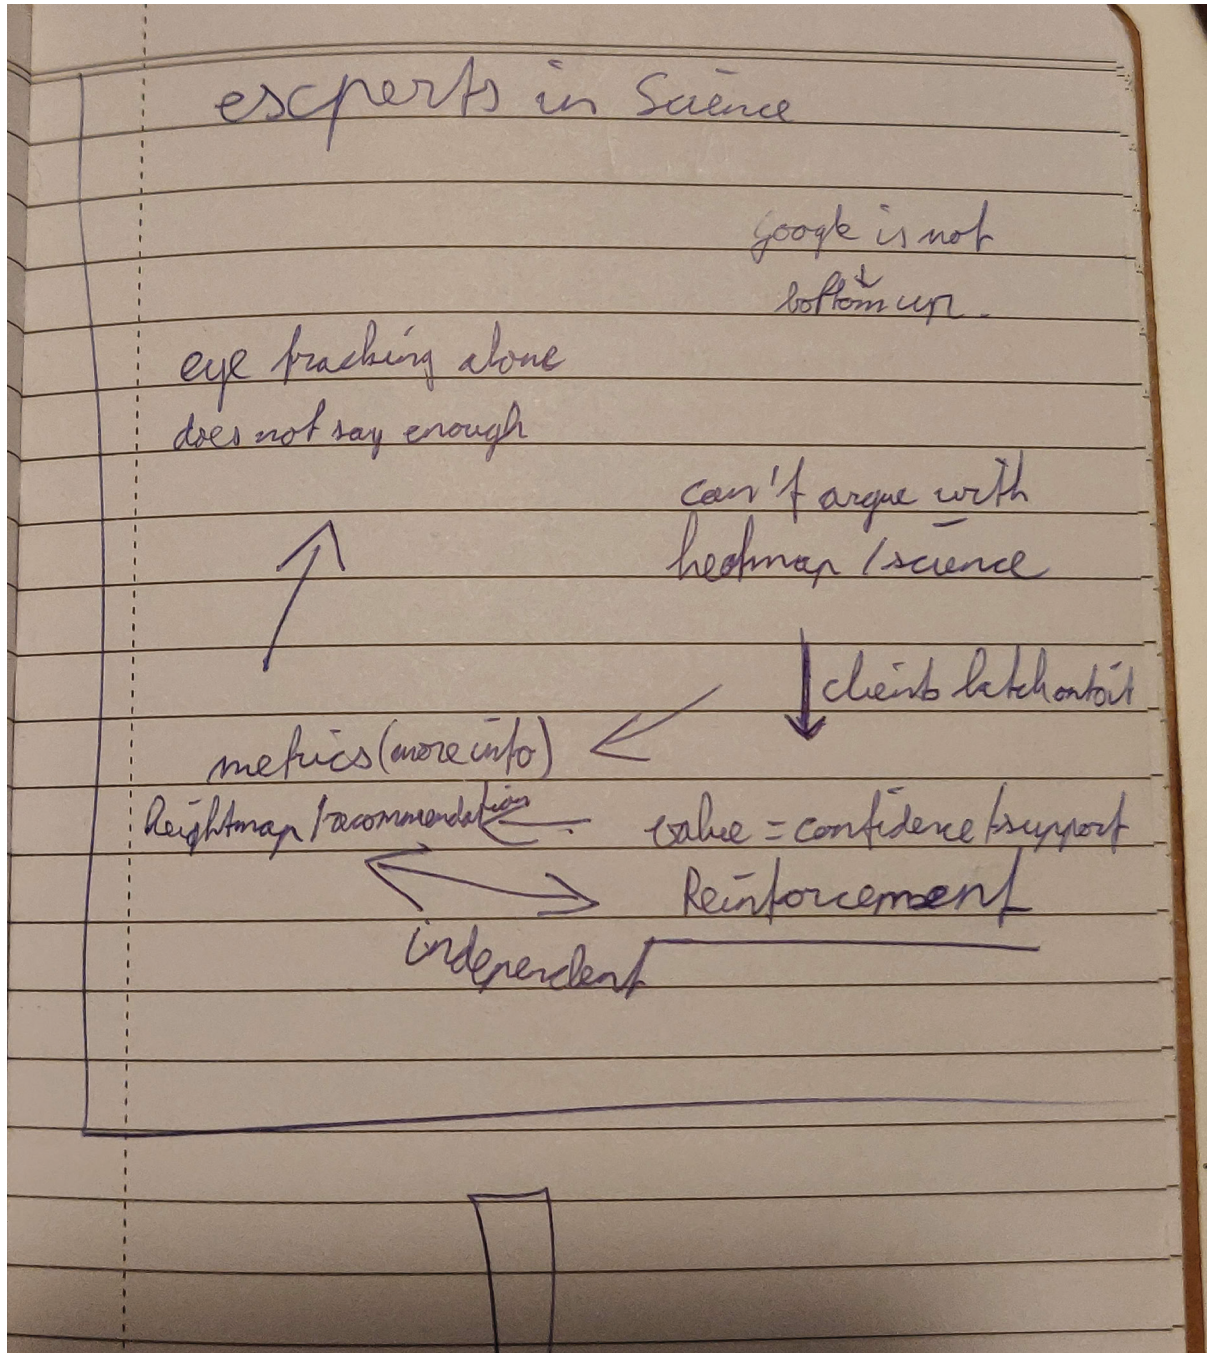 experts in Science
Google is not
bottom up.
eye tracking alone
does not say enough
can't argue with
heatmap / science
clients latch onto it
metrics (more info)
heightmap / recommendation
value = confidence / support
Reinforcement
independent